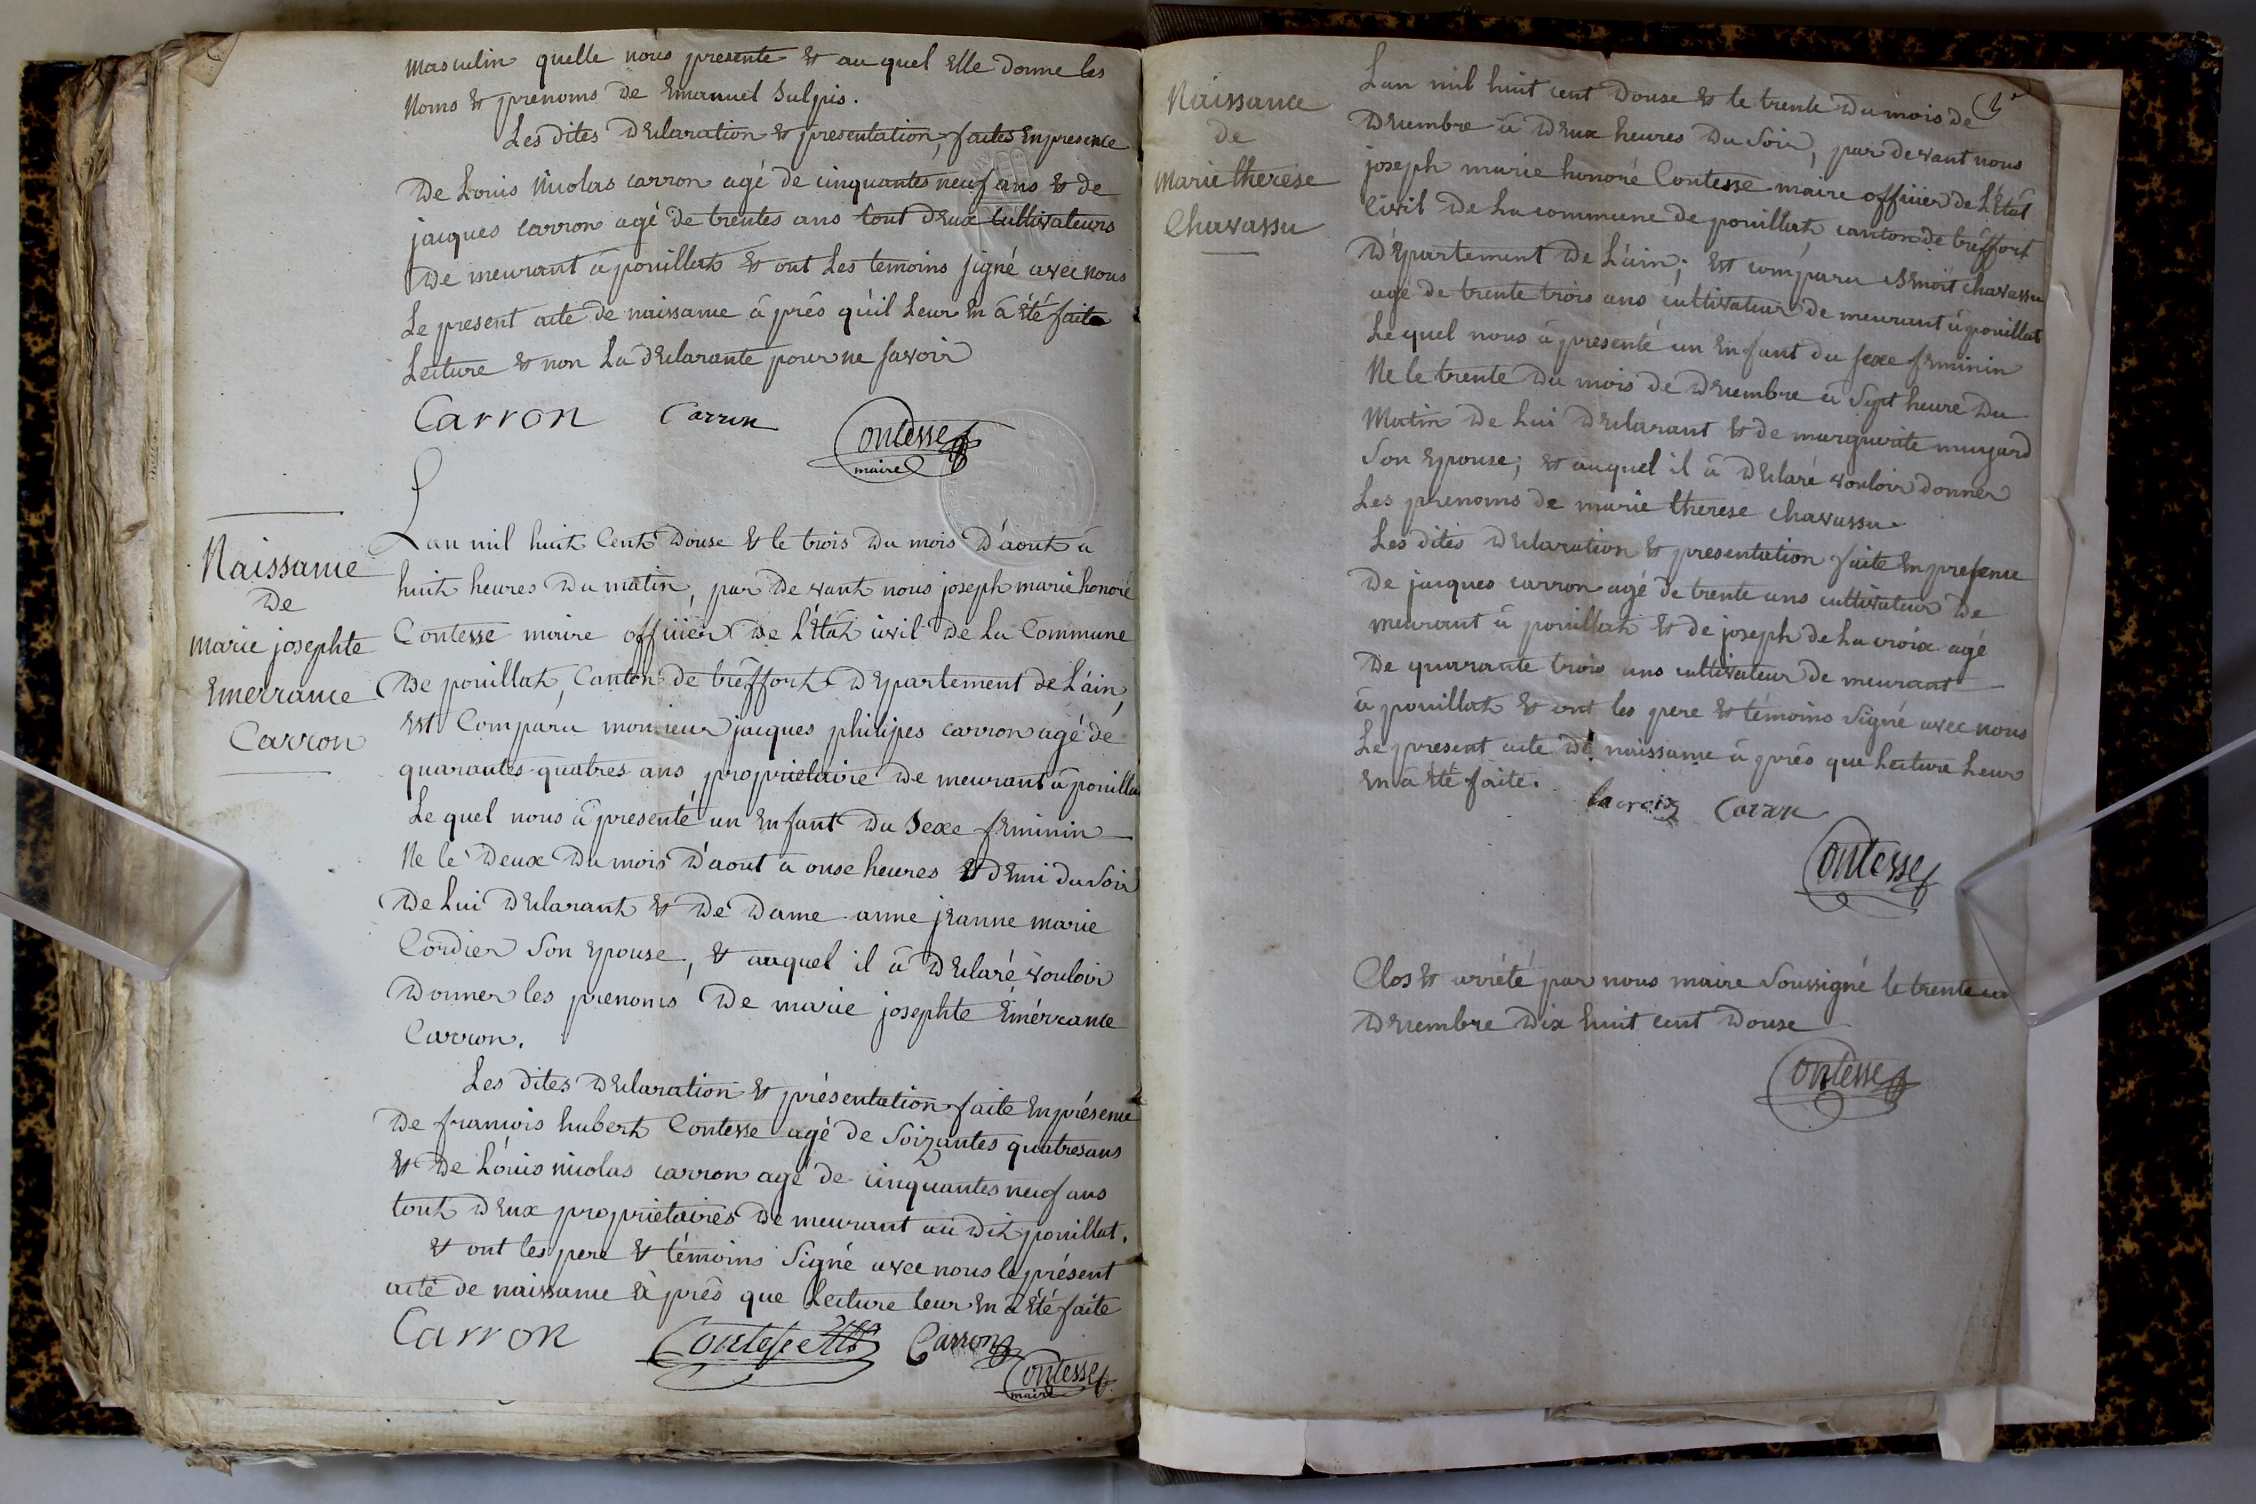 masculin quelle nous presente & au quel Elle donne les
Noms & prenoms de Emanuel Sulpis.
Les dites Declaration & presentation, faites En presence
De Louis Nicolas carron agé de cinquantes neuf ans & de
jacques carron agé de trentes ans tout deux cultivateurs
De meurant á pouillat & ont Les temoins signé avec nous
Le present acte de naissance á prés qu'il Leur En á Été faite
Lecture & non La declarante pour ne savoir
Carron Carron Contesse
maire
Naissance
de
marie josephte
Emerrance
Carron
Lan mil huit Cent Douse & le trois du mois D'aout á
huit heures du matin, par de vant nous joseph marie honoré
Contesse maire officier de L'État civil de La Commune
De pouillat, Canton de treffort Département de L'ain,
est Comparu monsieur jacques philipes carron agé dé
quarantes quatres ans proprietaire de meurant á pouillat
Le quel nous á presenté un Enfant du Sexe feminin
Ne le Deux du mois D'aout á onse heures & demi du soir
De Lui Declarant & de Dame anne jeanne marie
Cordier Son Epouse, & auquel il á Declaré vouloir
Donner les prenoms De marie josephte Émérrance
Carron.
Les dites Declaration & présentation faite En présence
De francois hubert Contesse agé de Soizantes quatres ans
& De Louis nicolas carron agé de cinquantes neuf ans
tout Deux proprietaires De meurant au dit pouillat.
& ont les pere & témoins Signé avec nous le présent
acte de naissance á prés que Lecture leur En á Été faite
Carron Contesse Carron
Contesse
maire
Naissance
de
Marie therese
Chavassu
Lan mil huit cent Douse & le trente Du mois de
Decembre á Deux heures Du Soir, par devant nous
joseph marie honoré Contesse maire officier de L'État
Civil De La commune de pouillat, canton de tréffort
Département De L'ain; est comparu Benoit chavassu
agé de trente trois ans cultivateur de meurant á pouillat
Le quel nous á presenté un Enfant du sexe feminin
Ne le trente Du mois de Decembre á Sept heure Du
Matin De Lui Declarant & de marguerite mugard
Son Epouse; & auquel il á Declaré vouloir donner
Les prenoms de marie therese chavassu.
Les dites Declaration & presentation faite En presence
De jacques carron agé de trente ans cultivateur De
meurant á pouillat & de joseph de La croix agé
De quarante trois ans cultivateur de meurant
á pouillat & ont les pere & témoins Signé avec nous
Le present acte de naissance á prés que Lecture Leur
En á Eté faite.
Lacroix Carron
Contesse
Clos & arrété par nous maire Soussigné le trente un
Decembre Dix huit cent Douse
Contesse